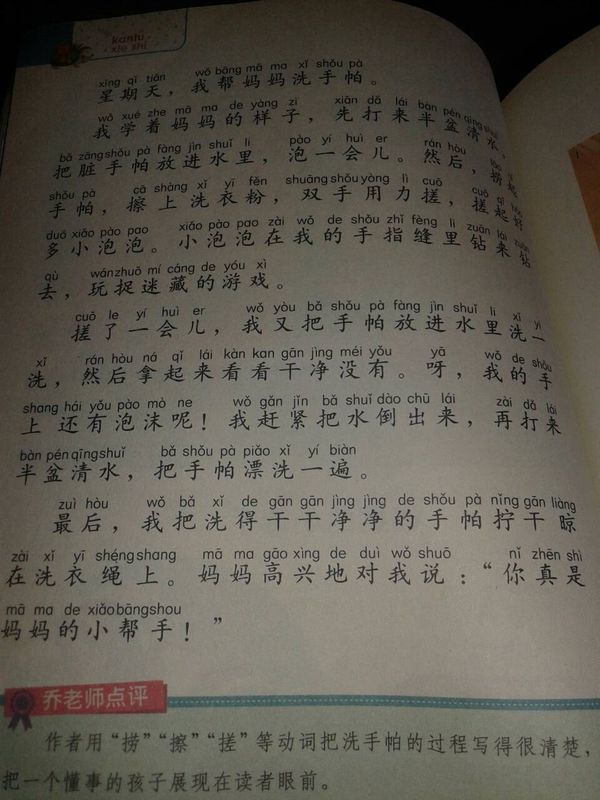 kàntú
xiě shì
xīng qī tiān wǒ bāng mā ma xǐ shǒu pà
星期天，我帮妈妈洗手帕。
wǒ xué zhe mā ma de yàng zi xiān dǎ lái bàn pén qīng shuǐ
我学着妈妈的样子，先打来半盆清水，
bǎ zāng shǒu pà fàng jìn shuǐ li pào yí huì er rán hòu
把脏手帕放进水里，泡一会儿。然后，捞起
shǒu pà cā shàng xǐ yī fěn shuāng shǒu yòng lì cuō cuō qǐ hǎo
手帕，擦上洗衣粉，双手用力搓，搓起好
duō xiǎo pào pao xiǎo pào pao zài wǒ de shǒu zhǐ fèng li zuān lái zuān
多小泡泡。小泡泡在我的手指缝里钻来钻
qù wán zhuō mí cáng de yóu xì
去，玩捉迷藏的游戏。
cuō le yí huì er wǒ yòu bǎ shǒu pà fàng jìn shuǐ lǐ xǐ yi
搓了一会儿，我又把手帕放进水里洗一
xǐ rán hòu ná qǐ lái kàn kan gān jìng méi yǒu yā wǒ de shǒu
洗，然后拿起来看看干净没有。呀，我的手
shang hái yǒu pào mò ne wǒ gǎn jǐn bǎ shuǐ dào chū lái zài dǎ lái
上还有泡沫呢！我赶紧把水倒出来，再打来
bàn pén qīng shuǐ bǎ shǒu pà piǎo xǐ yí biàn
半盆清水，把手帕漂洗一遍。
zuì hòu wǒ bǎ xǐ de gān gān jìng jìng de shǒu pà nǐng gān liàng
最后，我把洗得干干净净的手帕拧干晾
zài xǐ yī shéng shang mā ma gāo xìng de duì wǒ shuō nǐ zhēn shì
在洗衣绳上。妈妈高兴地对我说：“你真是
mā ma de xiǎo bāng shou
妈妈的小帮手！”
乔老师点评
作者用“捞”“擦”“搓”等动词把洗手帕的过程写得很清楚，
把一个懂事的孩子展现在读者眼前。